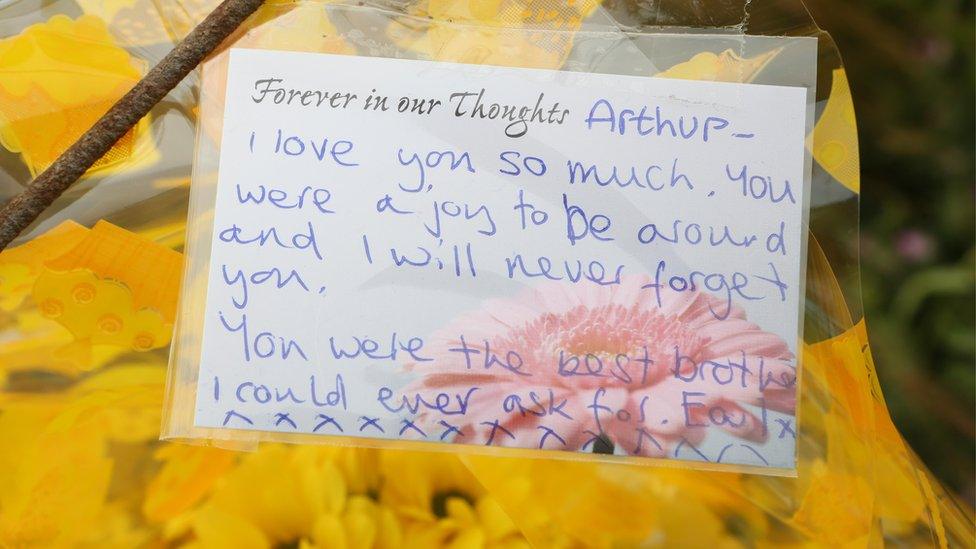 Forever in our Thoughts Arthur-
I love you so much. You
were a joy to be around
and I will never forget
you.
You were the best brother
I could ever ask for. Earl x
x x x x x x x x x x x x